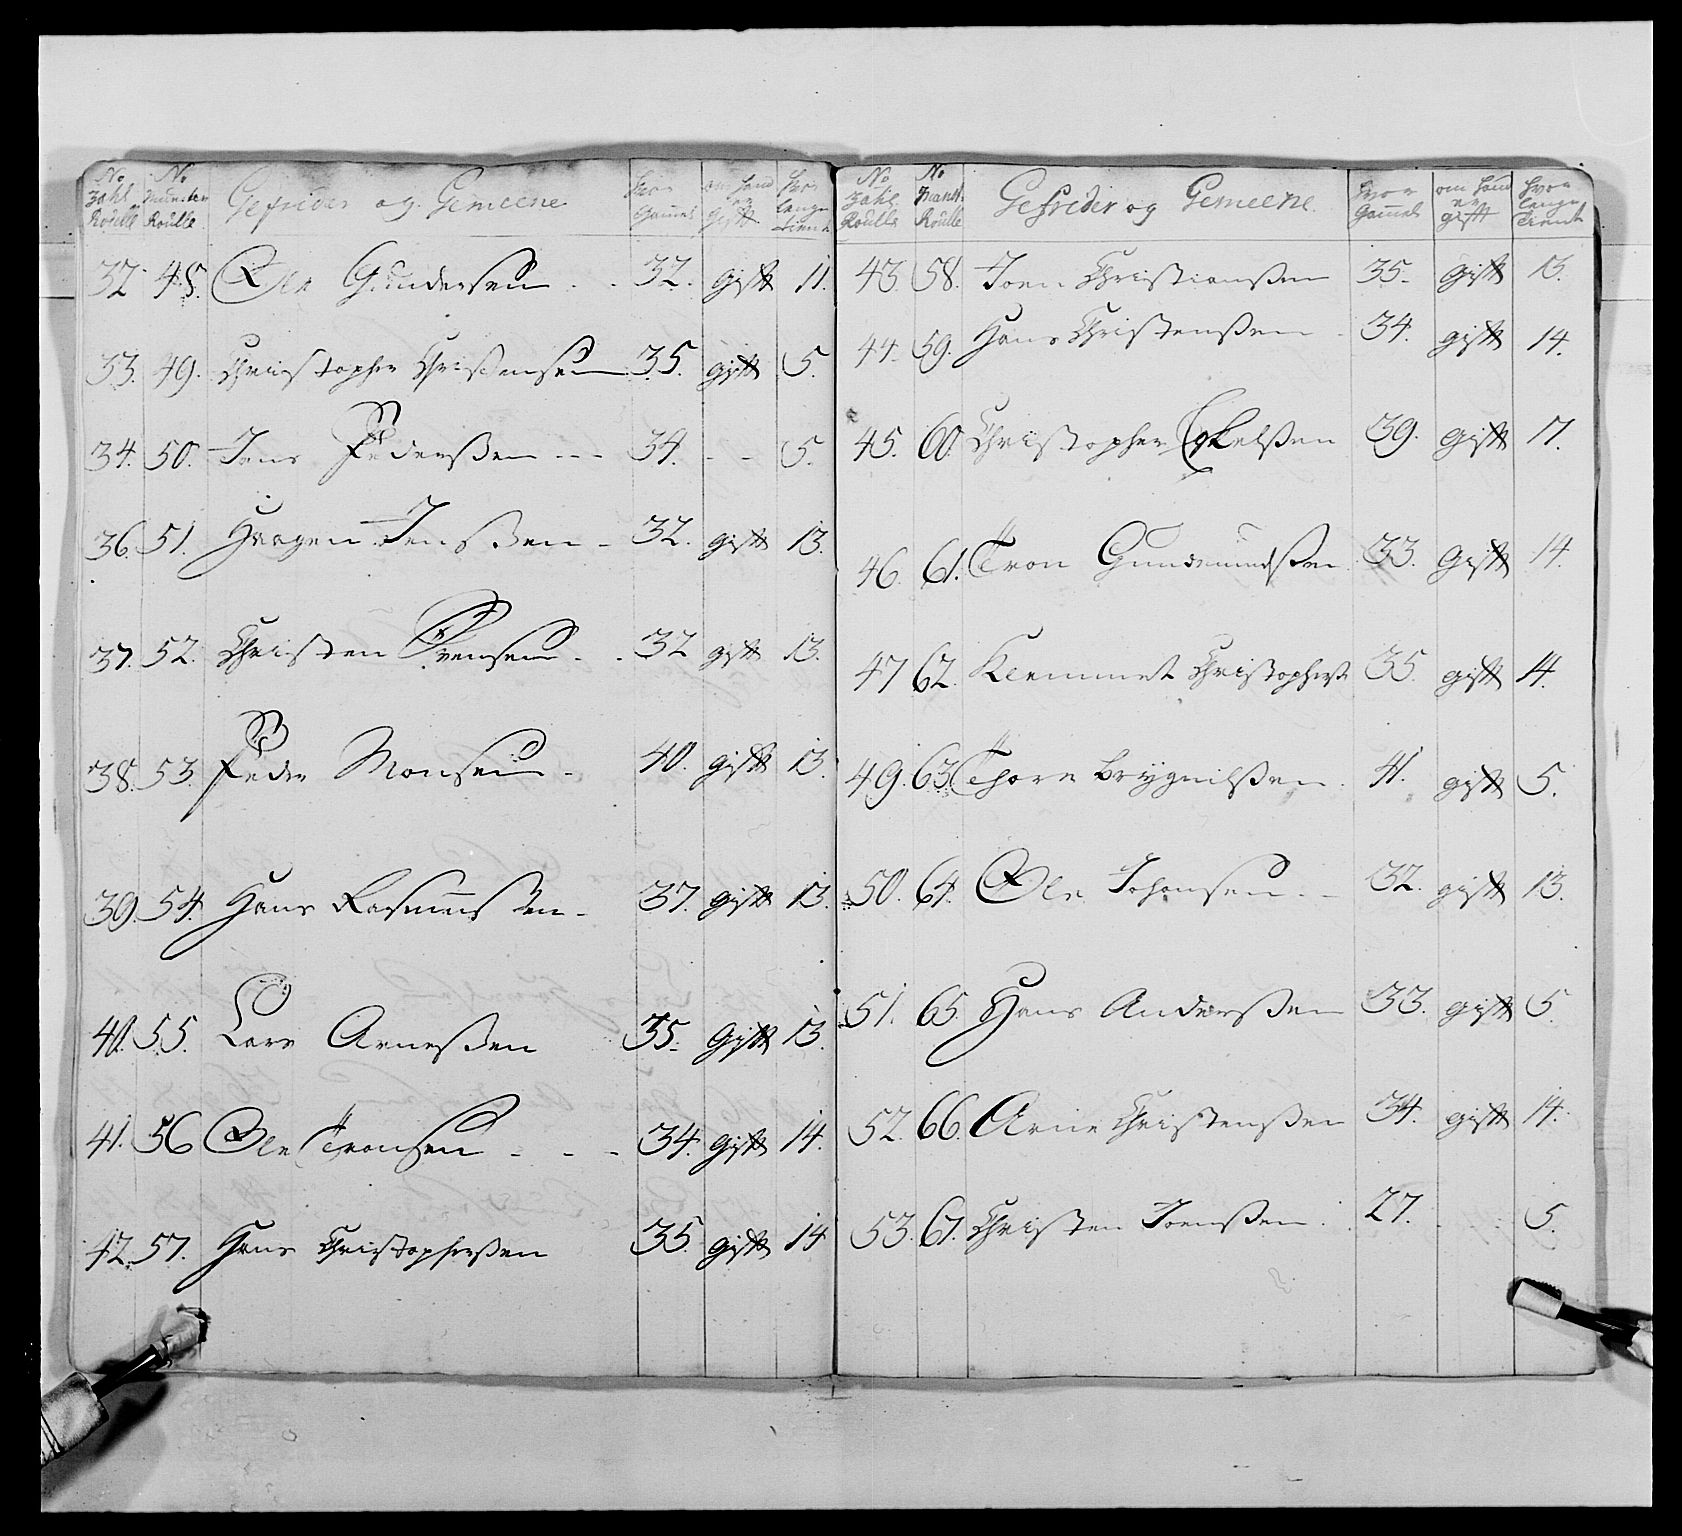 No Zahl Roulle No Munster Roulle Gefrider og Gemeene hvor Gammel om hand er gift hvor lenge tient
32 48. Ole Gundersen 32. gift 11.
33. 49. Christopher Christensen 35. gift 5.
34. 50. Jens Pedersen 34. - - 5.
36. 51. Haagen Jensen 32. gift 13.
37. 52. Christen Svensen 32 gift 13.
38. 53. Peder Monsen 40. gift 13.
39. 54. Hans Rasmussen 37. gift 13.
40. 55. Lars Arnesen 35. Gift 13.
41. 56 Ole Tronsen 34. gift 14.
42. 57. Hans Christophersen 35. gift 14
No Zahl Roulle No Roulle Gefrider og Gemeene. hvor Gammel om hand er gift hvor lenge Tient
43. 58. Joen Christiansen 35. gift 13.
44. 59. Hans Christensen 34. gift 14.
45. 60. Christopher Eskelsen 39. gift 17.
46. 61. Tron Gundmundsen 33. Gift 14.
47 62. Klemmet Christophers 35. gift 14.
49. 63. Thore Brygnilsen 41. gift 5.
50. 64. Ole Johansen 32. gift 13.
51. 65. Hans Andersen 33. gift 5.
52. 66. Arne Christensen 34. gift 14.
53. 67. Christen Joensen 27. 5.